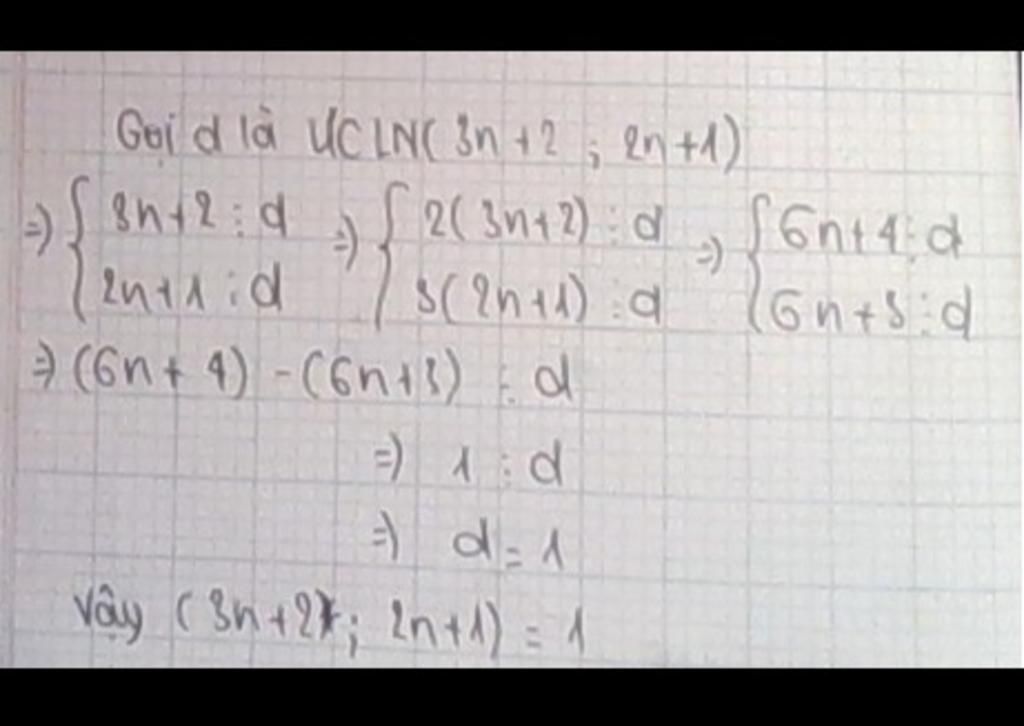 Gọi d là ƯCLN( 3n+2 ; 2n+1)
=> { 3n+2 ⋮ d => { 2(3n+2) ⋮ d => { 6n+4 ⋮ d
2n+1 ⋮ d 3(2n+1) ⋮ d 6n+3 ⋮ d
=> (6n+4) - (6n+3) ⋮ d
=> 1 ⋮ d
=> d = 1
Vậy (3n+2; 2n+1) = 1